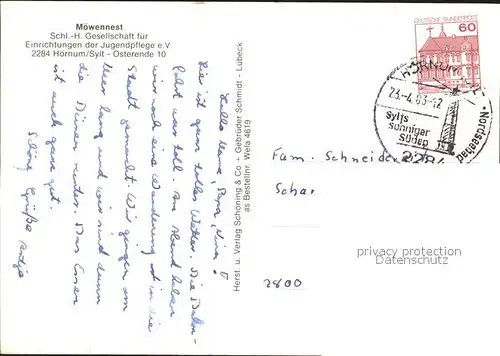 Möwennest
Schl.-H. Gesellschaft für
Einrichtungen der Jugendpflege e.V.
2284 Hörnum/Sylt - Osterende 10
Hallo Mama, Papa,
hier ist ganz tolles Wetter. Die Bahn-
fahrt war toll. Am Abend haben
wir noch eine Wanderung in die
Stadt gemacht. Wir gingen am
Meer lang und wir sind dann
die Dünen runter. Das Essen
ist auch ganz gut.
Schöne Grüße
Herst. u. Verlag Schöning & Co + Gebrüder Schmidt - Lübeck
as Bestellnr. Wela 4619
DEUTSCHE BUNDESPOST
60
HÖRNUM
23.-4.83-12
Sylts
sonniger
Süden
Nordseebad
2284
Fam. Schneider
Schar
2800
privacy protection
VERANSICHTKARTEN.COM